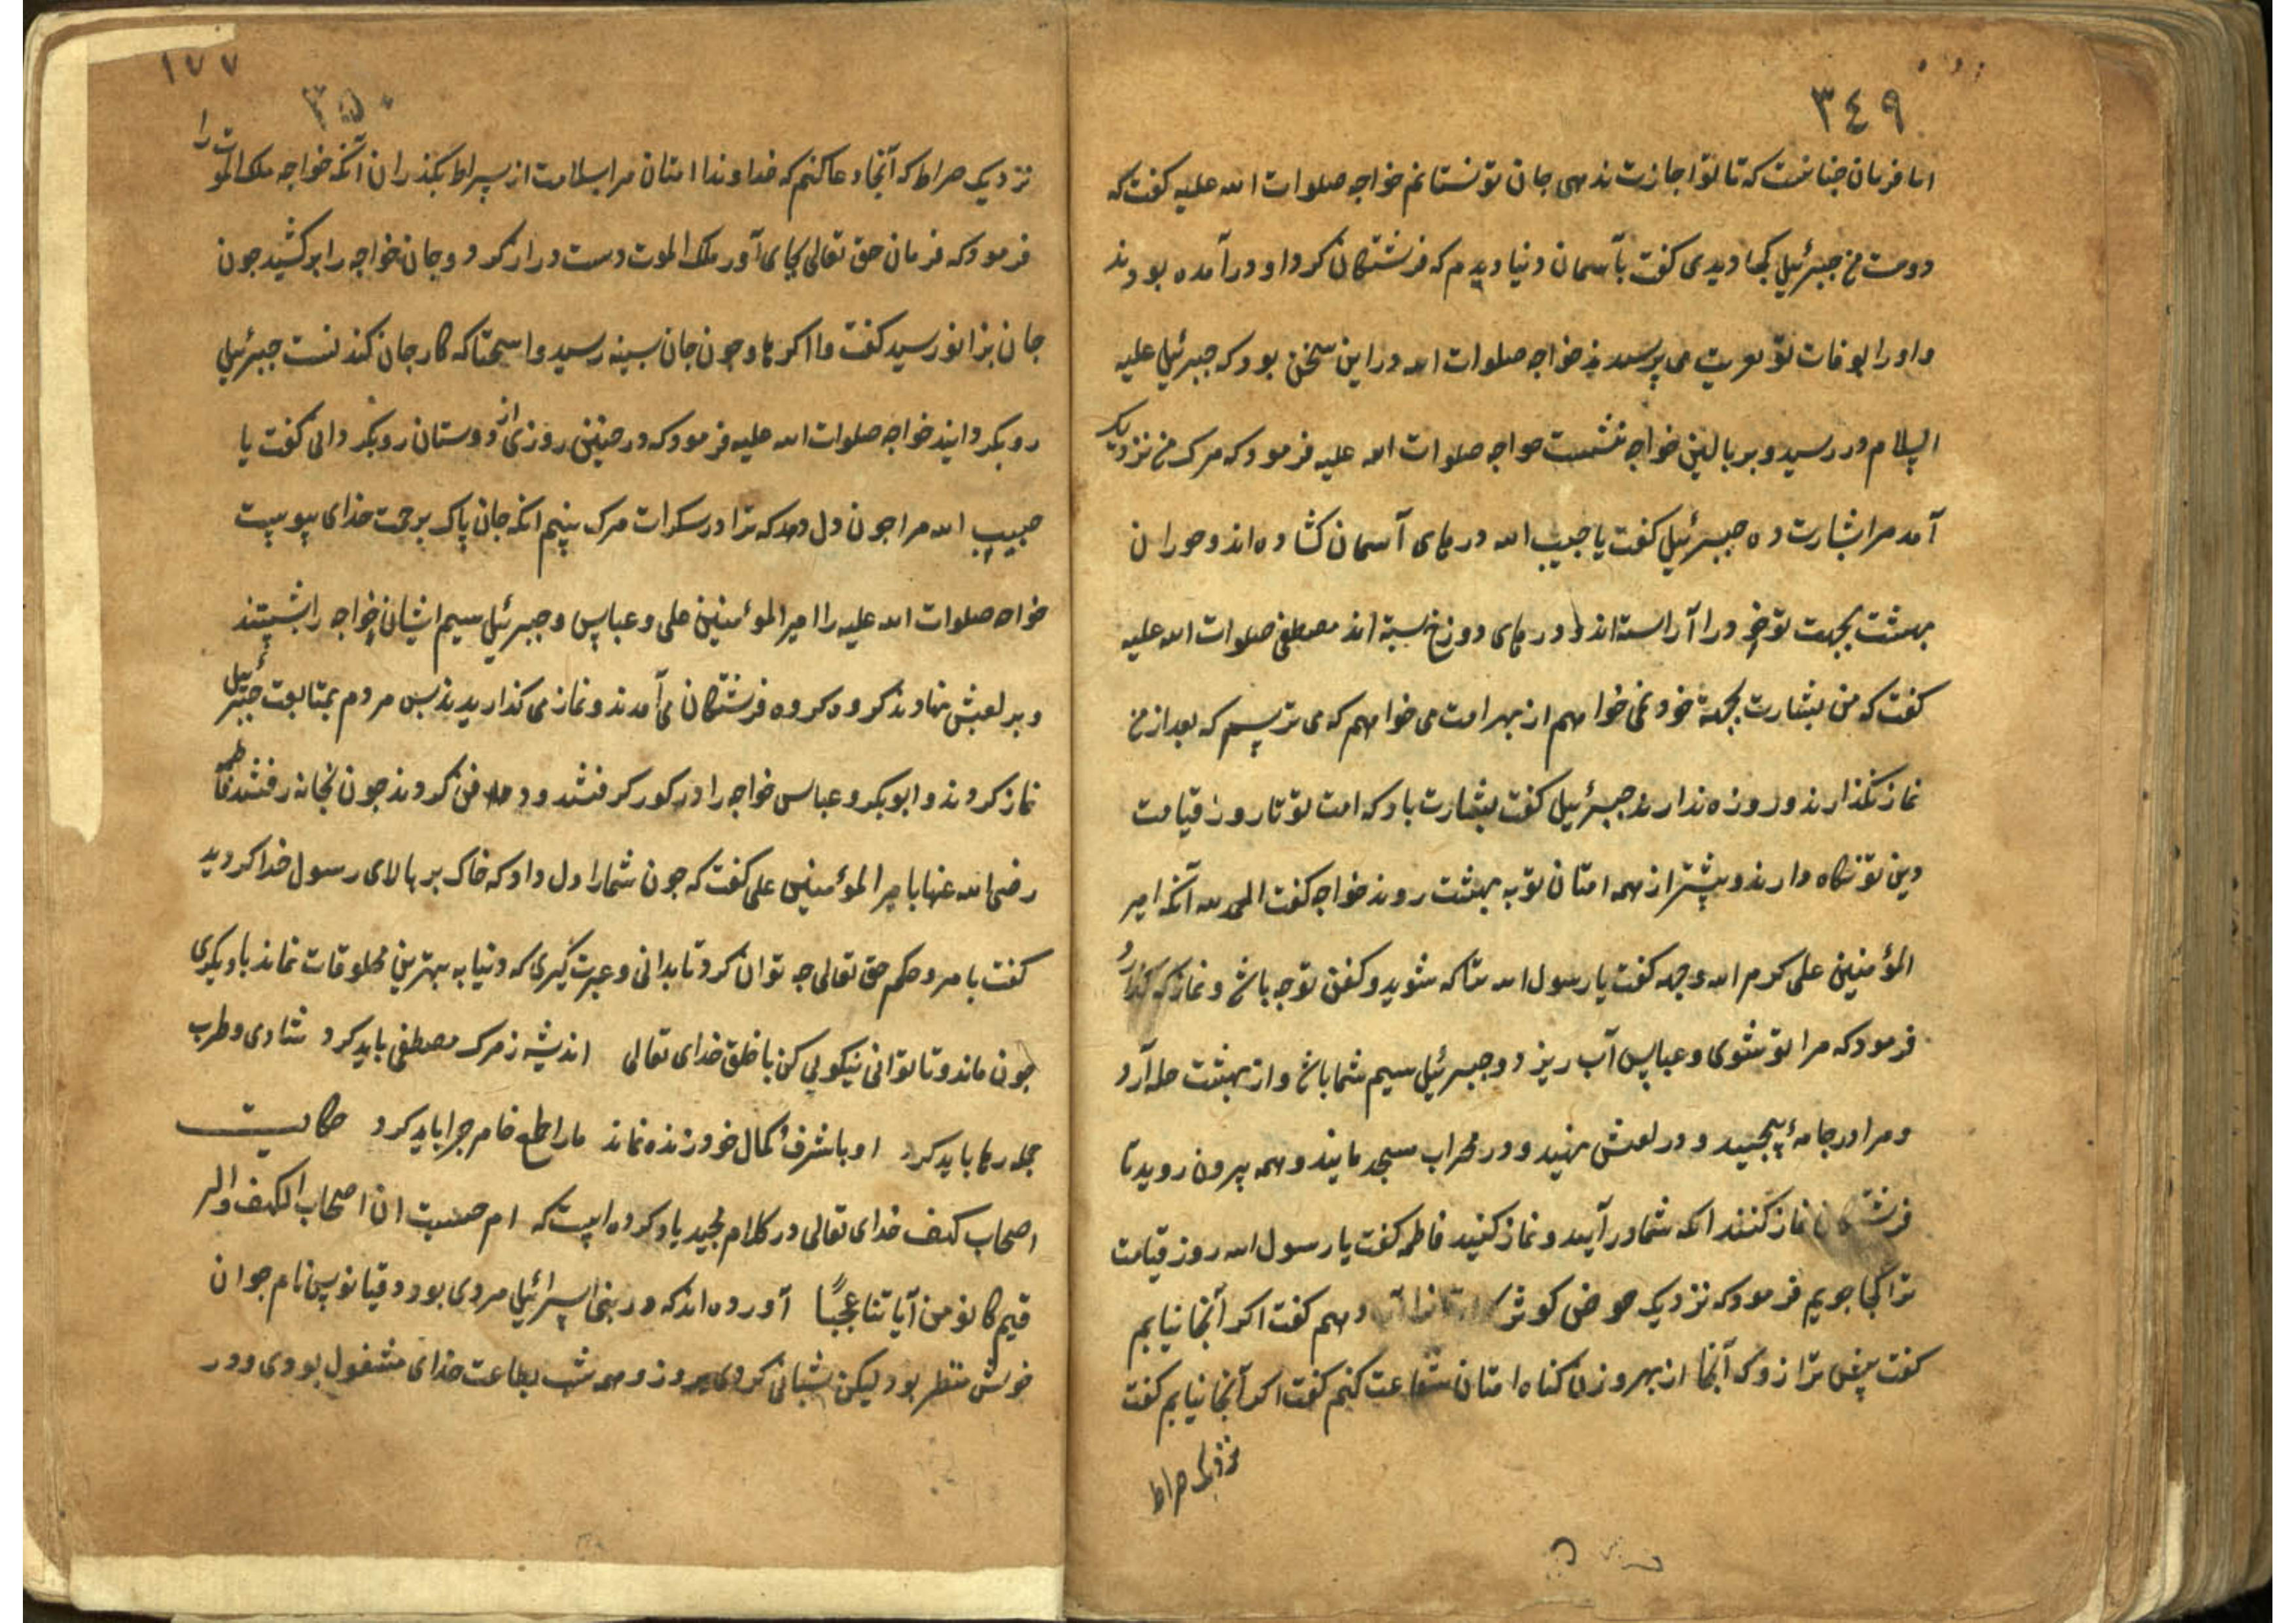 ٣٤٩
اما فرمان چنانست که تا تو اجازت ندهی جان تو نستانم خواجه صلوات الله علیه کفت که
دوست من جبرئیل کجا دیدی کفت بآسمان دنیا دیدم که فرشتکان کرد او درآمده بودند
و او را بوفات تو تعزیت می پرسیدند خواجه صلوات الله در این سخن بود که جبرئیل علیه
السلام در رسید و بر بالین خواجه نشست خواجه صلوات الله علیه فرمود که مرک من نزدیک
آمد مرا بشارت ده جبرئیل کفت یا حبیب الله درهای آسمان کشاده اند و حوران
بهشت بجهت تو خود را آراسته اند و درهای دوزخ بسته اند مصطفی صلوات الله علیه
کفت که من بشارت بجهة خود نمی خواهم از بهر امت می خواهم که می ترسم که بعد از من
نماز نکذارند و روزه ندارند جبرئیل کفت بشارت باد که امت تو تا روز قیامت
دین تو نکاه دارند و پیشتر از همه امتان تو به بهشت روند خواجه کفت الحمد لله آنکه امیر
المؤمنین علی کرم الله وجهه کفت یا رسول الله شما که شوید و کفن تو چه باشد و نماز که کذارد
فرمود که مرا تو بشوی و عباس آب ریزد و جبرئیل سیم شما باشد و از بهشت حله آرد
و مرا در جامه پیچید و در نعش نهید و در محراب مسجد مانید و همه بیرون روید تا
فرشتکان نماز کنند انکه شما درآیید و نماز کنید فاطمه کفت یا رسول الله روز قیامت
ترا کجا جویم فرمود که نزدیک حوض کوثر دهم کفت اکر آنجا نیابم
کفت پیش ترازو که آنجا از بهر وزن کناه امتان شفاعت کنم کفت اکر آنجا نیابم کفت
نزدیک صراط
١٧٧
٣٥٠
نزدیک صراط که آنجا دعا کنم که خداوندا امتان مرا بسلامت از سراط بکذران آنکه خواجه ملک الموت را
فرمود که فرمان حق تعالی بجای آور ملک الموت دست دراز کرد و جان خواجه را برکشید جون
جان بزانو رسید کفت وا اکرباه و جون جان بسینه رسید وا که کار جان کندنست جبرئیل
رو بکردانید خواجه صلوات الله علیه فرمود که در چنین روزی از دوستان رو بکردانی کفت یا
حبیب الله مرا جون دل دهد که ترا در سکرات مرک بینم انکه جان پاک برحمت خدای پیوست
خواجه صلوات الله علیه را امیر المؤمنین علی و عباس و جبرئیل سیم ایشان خواجه را بشستند
و بر نعش نهادند کروه کروه فرشتکان می آمدند و نماز می کذاریدند پس مردم بمتابعت جبرئیل
نماز کردند و ابوبکر و عباس خواجه را در کور کرفتند و دفن کردند جون بخانه رفتند فاطمه
رضی الله عنها با امیر المؤمنین علی کفت که جون شما را دل داد که خاک بر بالای رسول خدا کردید
کفت با امر و حکم حق تعالی چه توان کرد تا بدانی و عبرت گیری که دنیا به بهترین مخلوقات نماند با دیکری
جون ماند و تا توانی نیکویی کن با خلق خدای تعالی اندیشه ز مرک مصطفی باید کرد شادی و طرب
جمله رها باید کرد او با شرف کمال خود زنده نماند ما را طمع خام چرا باید کرد حکایت
اصحاب کهف خدای تعالی در کلام مجید یاد کرده است که ام حسبت ان اصحاب الکهف والر
قیم کانو من آیاتنا عجبًا آورده اند که در بنی اسرائیل مردی بود دقیانوس نام جوان
خوش منظر بود لیکن شبانی کردی بروز و همه شب بطاعت خدای مشغول بودی و در